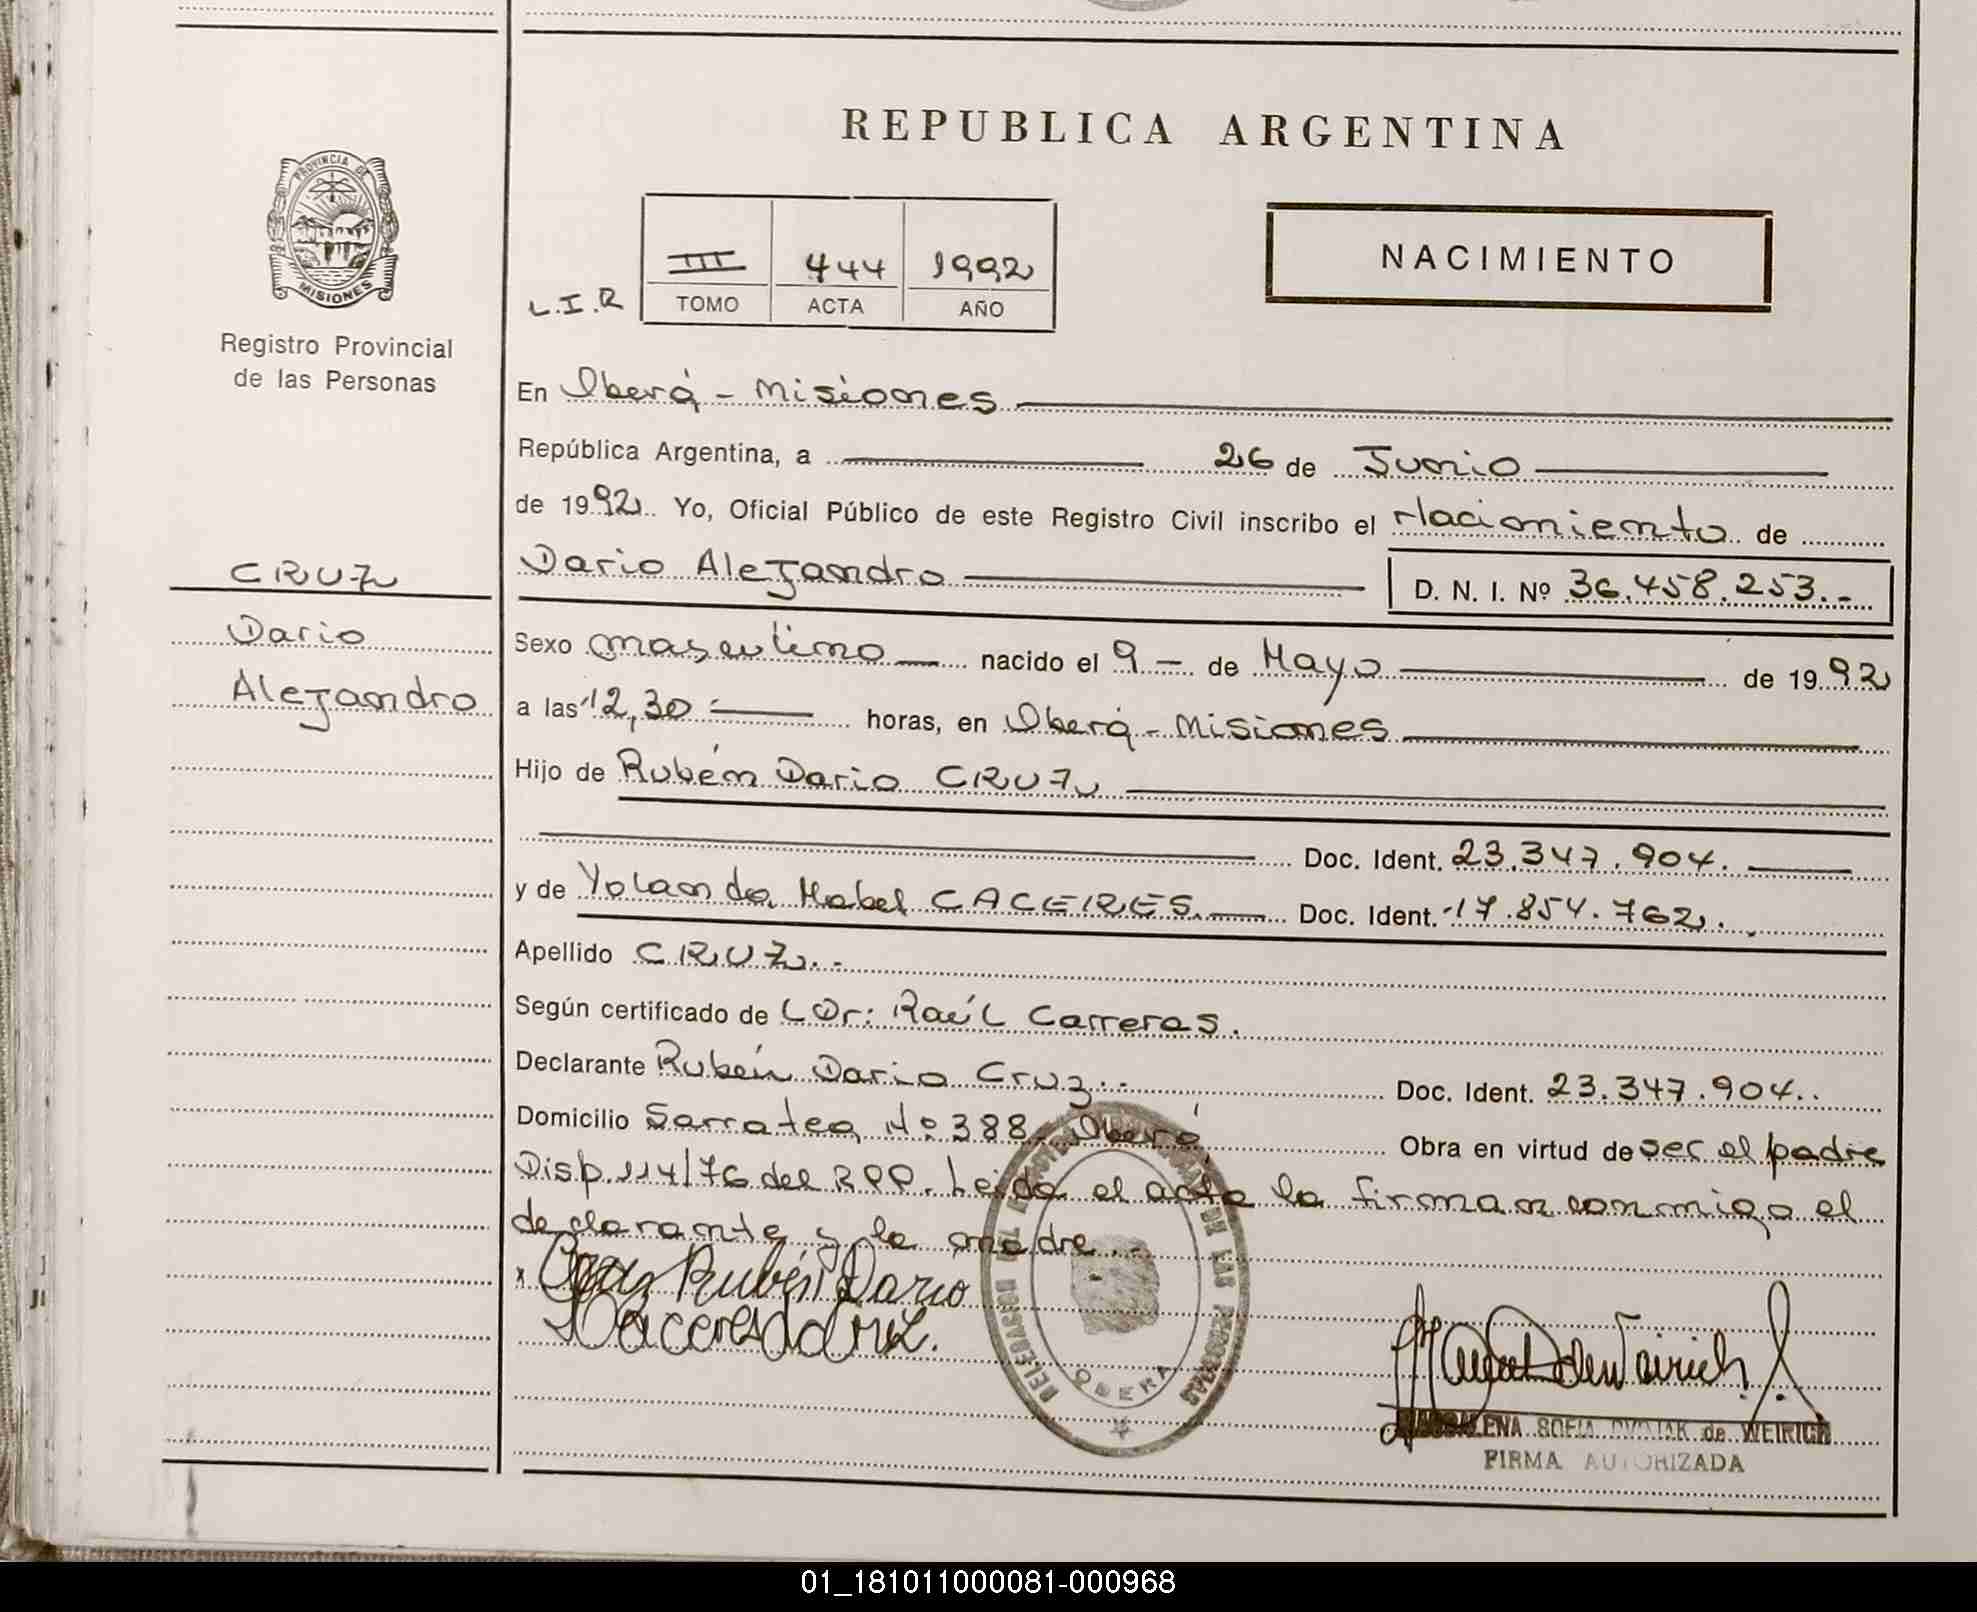 REPUBLICA ARGENTINA
PROVINCIA DE
MISIONES
Registro Provincial
de las Personas
L.I.R
III 444 1992
TOMO ACTA AÑO
NACIMIENTO
En Oberá - Misiones
República Argentina, a 26 de Junio
de 1992. Yo, Oficial Público de este Registro Civil inscribo el Nacimiento de
Dario Alejandro D. N. I. Nº 36.458.253.-
CRUZ
Dario
Alejandro
Sexo masculino nacido el 9 - de Mayo de 1992
a las 12,30 - horas, en Oberá - Misiones
Hijo de Rubén Dario CRUZ
Doc. Ident. 23.347.904.
y de Yolanda Mabel CACERES. Doc. Ident. 17.854.762.
Apellido CRUZ.-
Según certificado de LDr: Raúl Carreras.
Declarante Rubén Dario Cruz.- Doc. Ident. 23.347.904..
Domicilio Sarratea Nº 388. Oberá Obra en virtud de ser el padre
Disp. 114/76 del RPP. Leida el acta la firman conmigo el
declarante y la madre.-
x Cruz Rubén Dario
DELEGACION DEL REGISTRO DE LAS PERSONAS
OBERA
MAGDALENA SOFIA de WEIRICH
FIRMA AUTORIZADA
01_181011000081-000968